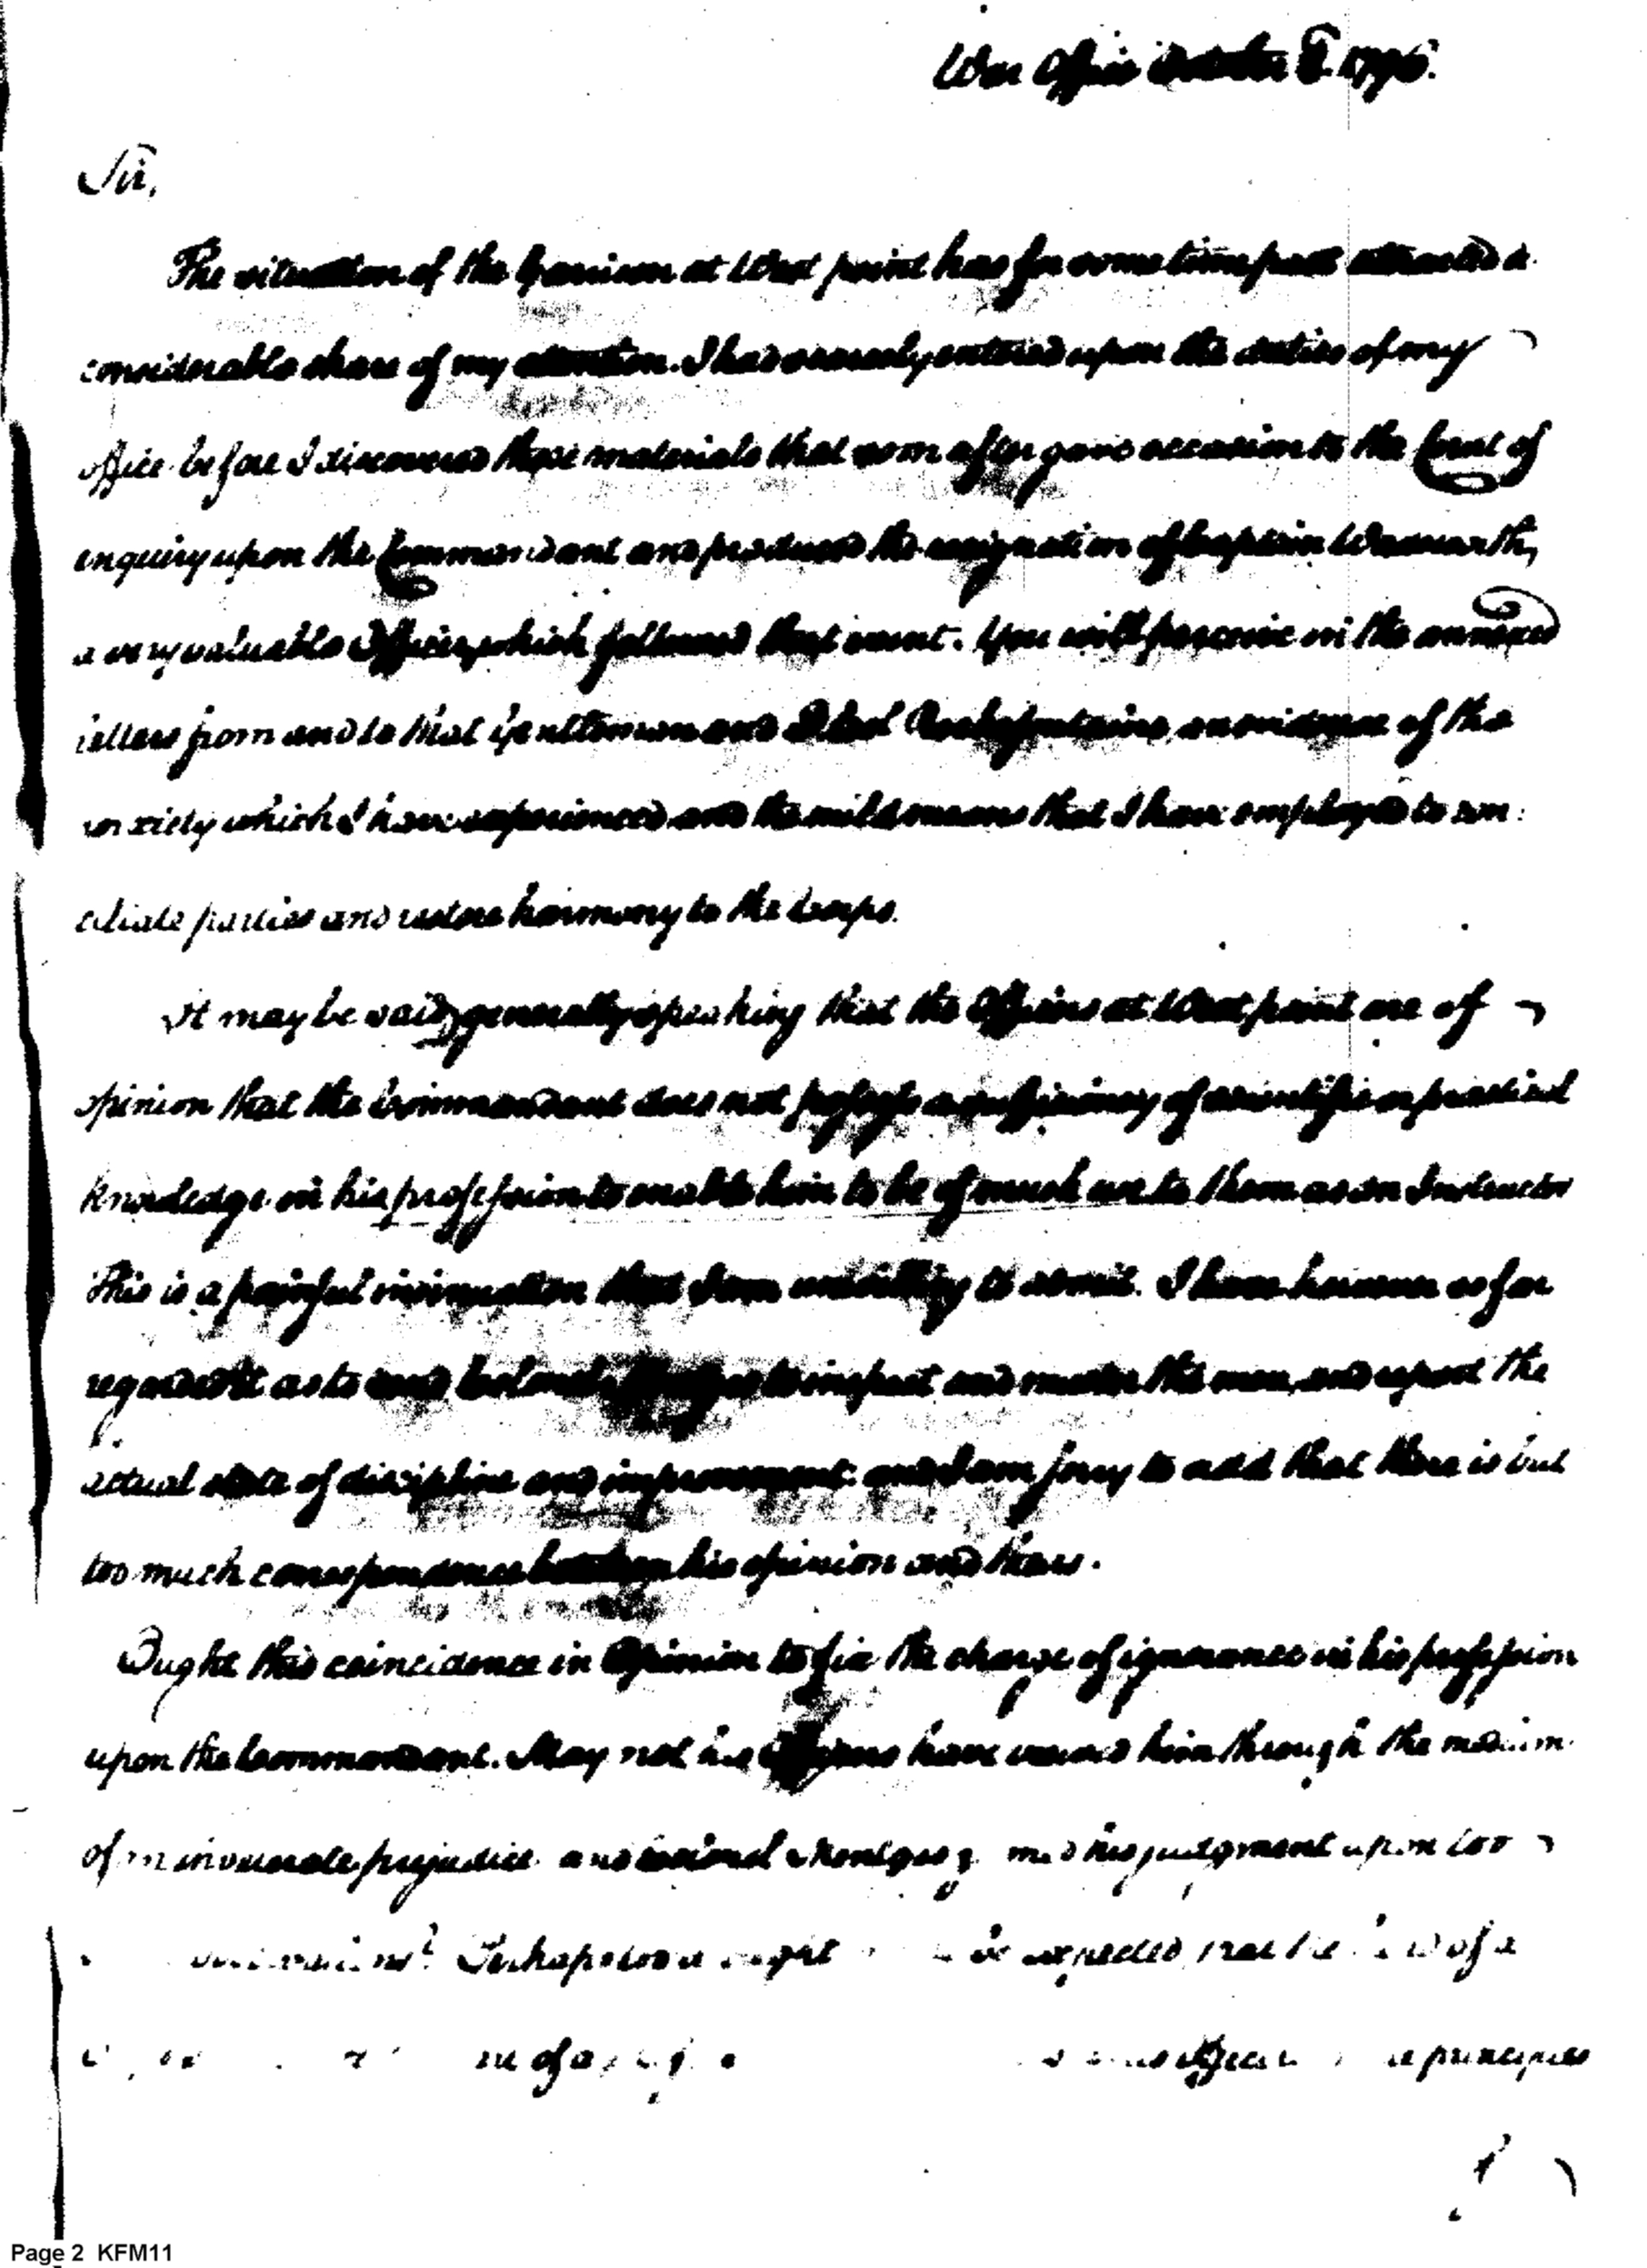 War Office October 8. 1796.
Sir,
The situation of the Garrison at West point has for some time past attracted a
considerable share of my attention. I had scarcely entered upon the duties of my
office before I discovered those materials that soon after gave occasion to the Court of
enquiry upon the Commandant and produced the resignation of Captain
a very valuable Officer, which followed that event. You will perceive in the annexed
letters from and to that Gentleman and Rochefontaine, an evidence of the
anxiety which I have experienced and the mild means that I have employed to con:
ciliate parties and restore harmony to the Corps.
It may be said, generally speaking that the Officers at West point are of
opinion that the Commandant does not possess a sufficiency of scientific or practical
knowledge in his profession to enable him to be of much use to them as an Instructor
This is a painful insinuation that I am unwilling to admit. I have however so far
regarded it as to send Colonel to inspect and muster the men, and report the
actual state of discipline and improvement: and I am sorry to add that there is but
too much correspondence between his opinion and theirs.
Ought this coincidence in Opinion to fix the charge of ignorance in his profession
upon the Commandant. May not his Officers have viewed him through the medium
of an inveterate prejudice and his judgment upon too
Perhaps too it ought be expected that the of a
of a principles
Page 2 KFM11